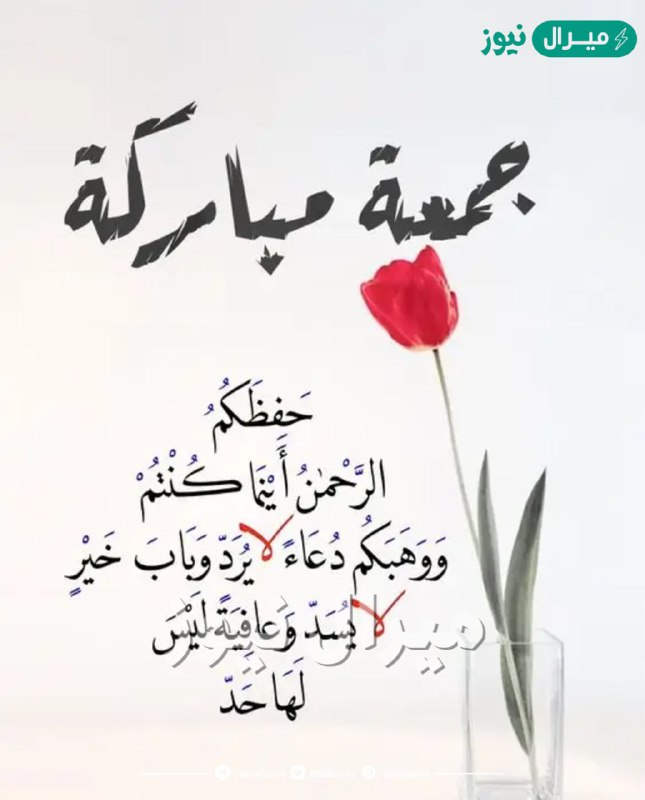 ميرال نيوز
جمعة مباركة
حَفِظَكُمُ
الرَّحْمٰنُ أَيْنَمَا كُنْتُمْ
وَوَهَبَكُم دُعَاءً لا يُرَدّ وَبَابَ خَيْرٍ
لا يُسَدّ وَعافِيَةً لَيْسَ
لَهَا حَدّ
ميرال نيوز